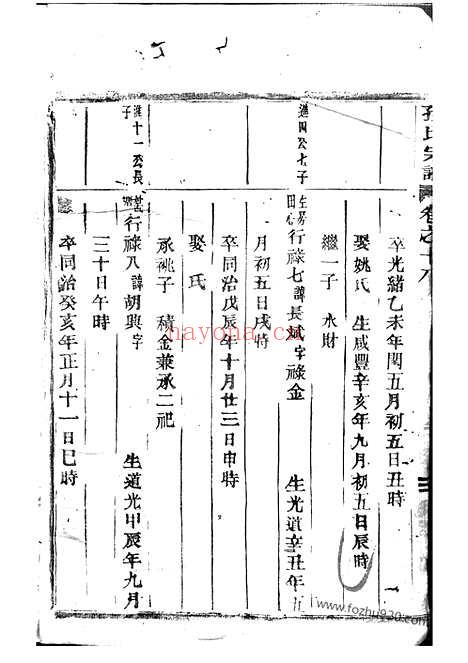 孫氏宗譜 卷之十八
卒光緒乙未年閏五月初五日丑時
娶姚氏 生咸豐辛亥年九月初五日辰時
繼一子 永財
進四公七子 行祿七諱長斌字祿金 生光道辛丑年五
月初五日戌時
卒同治戊辰年十月廿三日申時
娶 氏
承祧子 積金兼承二祀
進十一公長子 行祿八諱胡興字 生道光甲辰年九月
三十日午時
卒同治癸亥年正月十一日巳時
hayoha.cn
www.fozhu920.com